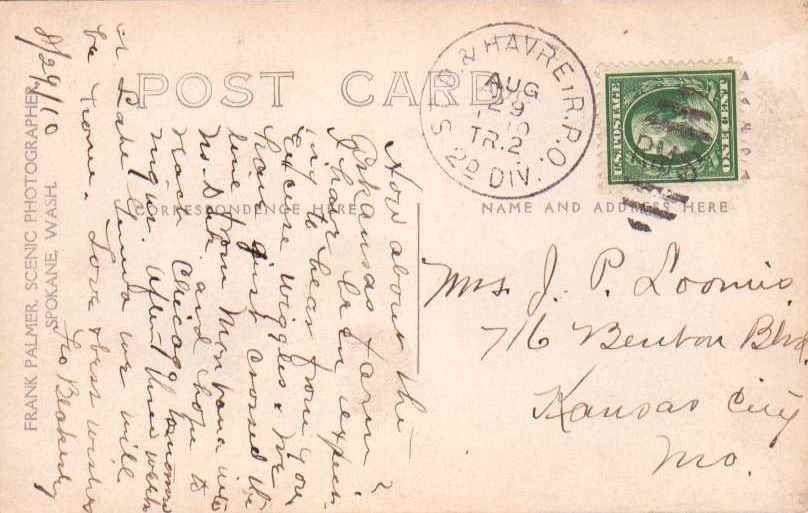 POST CARD
CORRESPONDENCE HERE
NAME AND ADDRESS HERE
FRANK PALMER, SCENIC PHOTOGRAPHER
SPOKANE, WASH.
& HAVRE, R.P.O.
AUG
29
TR. 2
S. 2D DIV.
U.S. POSTAGE
ONE CENT
8/29/10
How about the
Arkansas farm?
I have been expect-
ing to hear from you
Excuse wiggles. We
have just crossed the
line from Montana into
No. Dak. and hope to
reach Chicago tomorrow
night. After three weeks
at Lake Geneva we will
be home. Love & best wishes
Mrs. J. P. Loomis
716 Benton Blvd.
Kansas City
Mo.